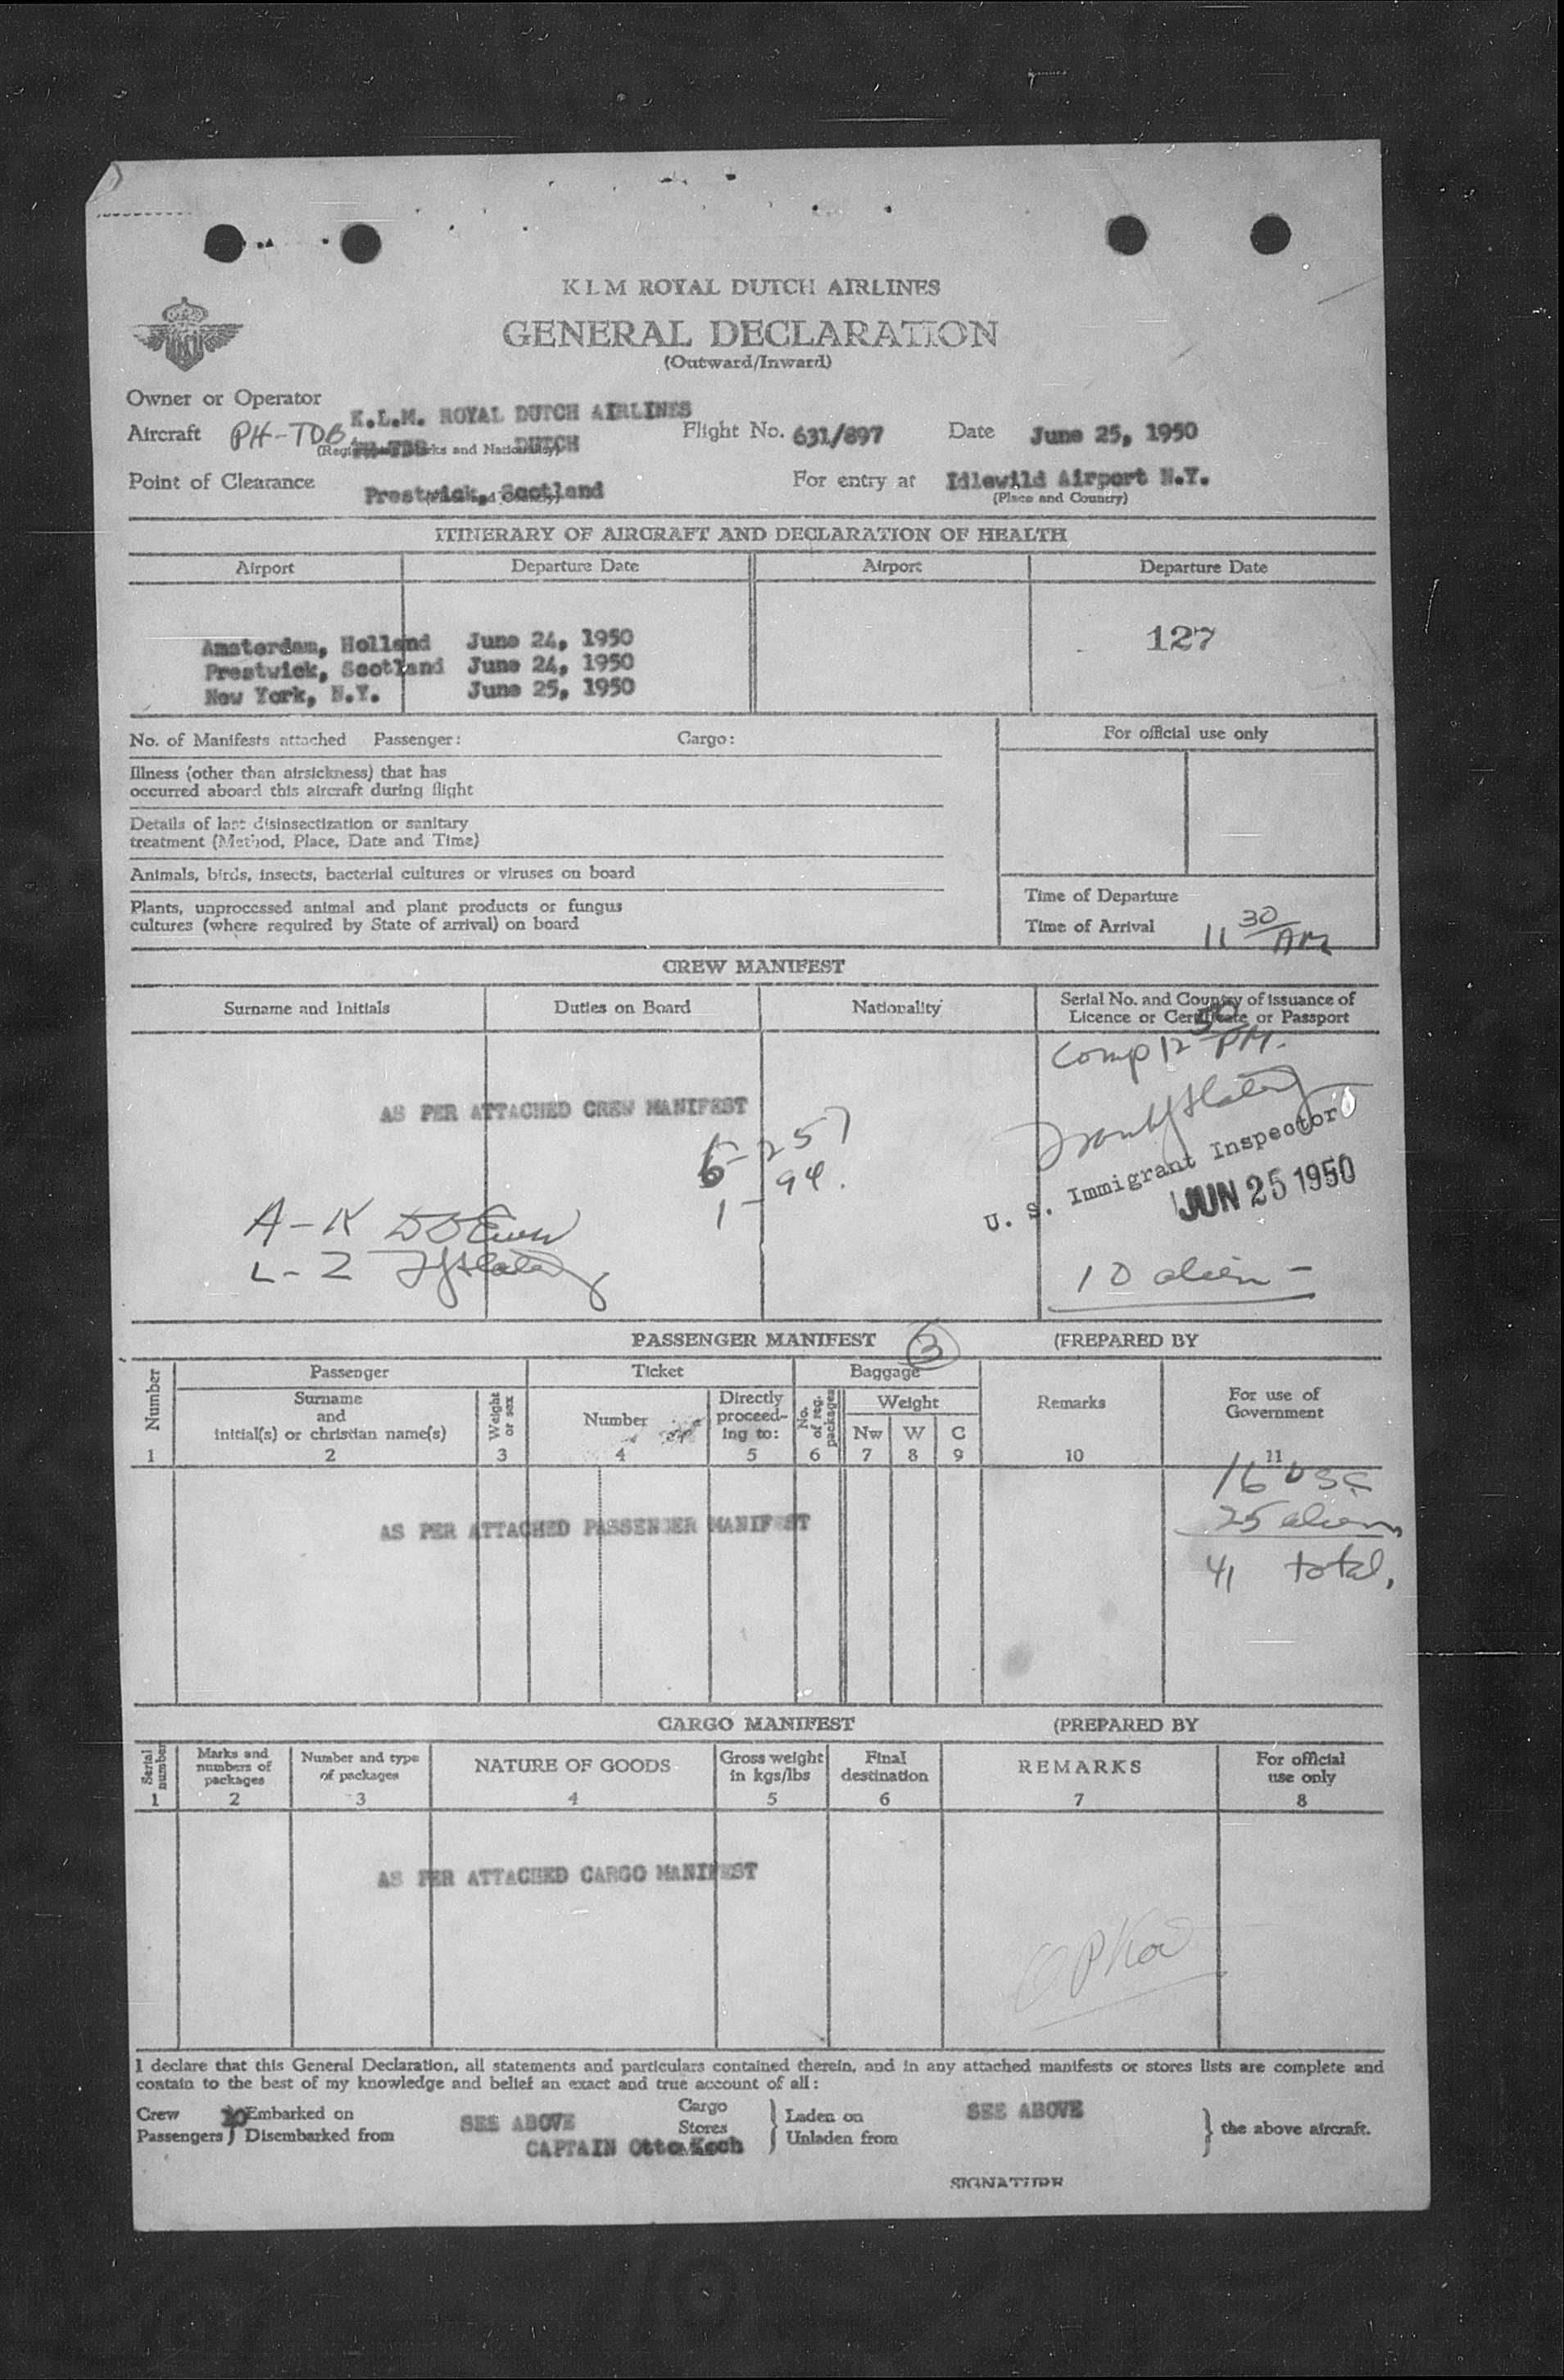 KLM ROYAL DUTCH AIRLINES
GENERAL DECLARATION
(Outward/Inward)
Owner or Operator
K.L.M. ROYAL DUTCH AIRLINES
Aircraft PH-TDB DUTCH Flight No. 631/897 Date June 25, 1950
Point of Clearance Prestwick, Scotland For entry at Idlewild Airport N.Y.
(Place and Country)
ITINERARY OF AIRCRAFT AND DECLARATION OF HEALTH
Airport Departure Date Airport Departure Date
127
Amsterdam, Holland June 24, 1950
Prestwick, Scotland June 24, 1950
New York, N.Y. June 25, 1950
No. of Manifests attached Passenger: Cargo:
For official use only
Illness (other than airsickness) that has
occurred aboard this aircraft during flight
Details of last disinsectization or sanitary
treatment (Method, Place, Date and Time)
Animals, birds, insects, bacterial cultures or viruses on board
Plants, unprocessed animal and plant products or fungus
cultures (where required by State of arrival) on board
Time of Departure
Time of Arrival 11 30 AM
CREW MANIFEST
Surname and Initials Duties on Board Nationality
Serial No. and Country of issuance of
Licence or Certificate or Passport
Comp 12 50 PM.
AS PER ATTACHED CREW MANIFEST
U. S. Immigrant Inspector
JUN 25 1950
6-257
1-94.
A-K
L-Z
10 alien -
PASSENGER MANIFEST 3 (PREPARED BY
Number
Passenger Ticket Baggage
Surname
and
initial(s) or christian name(s)
Weight
or sex
Number
Directly
proceed-
ing to:
No.
of reg.
packages
Weight
Nw W C
Remarks
For use of
Government
1 2 3 4 5 6 7 8 9 10 11
16 USC
25 aliens
41 total.
AS PER ATTACHED PASSENGER MANIFEST
CARGO MANIFEST (PREPARED BY
Serial
number
Marks and
numbers of
packages
Number and type
of packages
NATURE OF GOODS
Gross weight
in kgs/lbs
Final
destination
REMARKS
For official
use only
1 2 3 4 5 6 7 8
AS PER ATTACHED CARGO MANIFEST
I declare that this General Declaration, all statements and particulars contained therein, and in any attached manifests or stores lists are complete and
contain to the best of my knowledge and belief an exact and true account of all:
Crew 10 Embarked on SEE ABOVE Cargo Laden on SEE ABOVE
Passengers Disembarked from Stores Unladen from the above aircraft.
CAPTAIN Otto Koch
SIGNATURE